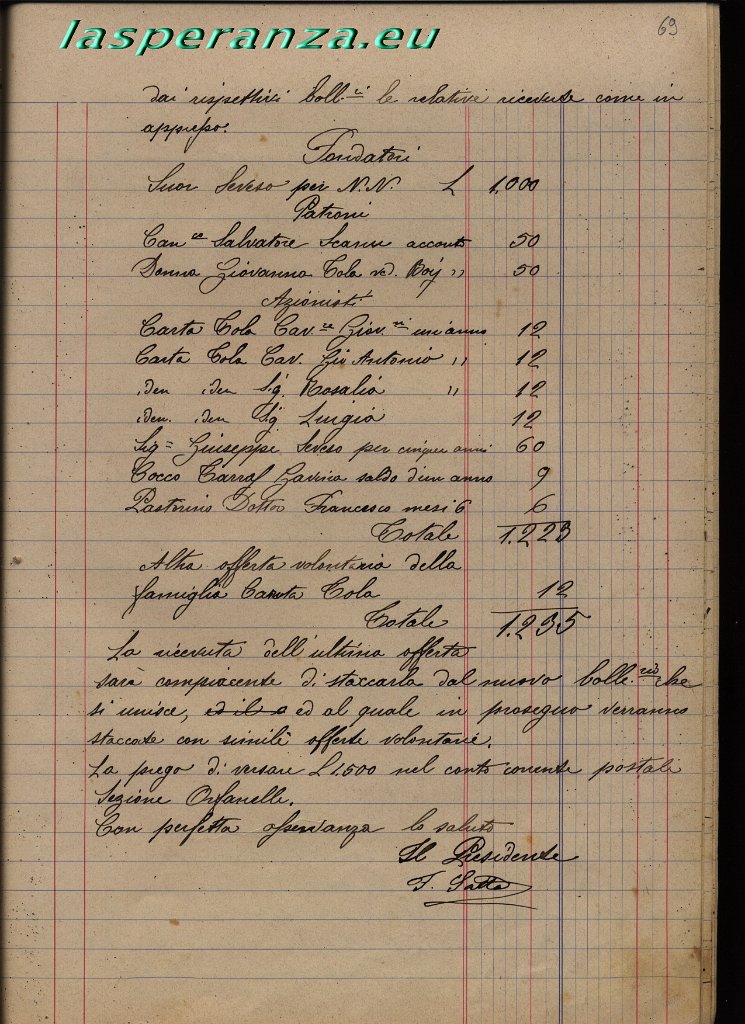 lasperanza.eu
69
dai rispettivi boll.ri le relative ricevute come in
appresso.
Fondatori
Suor Seveso per N.N. £ 1.000
Patroni
Can.co Salvatore Scanu acconto 50
Donna Giovanna Tola ved. Boÿ " 50
Azionisti
Carta Tola Cav. Giov. un anno 12
Carta Tola Cav. Gio Antonio " 12
iden iden Sig. Rosalia " 12
iden. iden Sig Luigia 12
Sig= Giuseppe Seveso per cinque anni 60
Cocco Gavina saldo d'un anno 9
Pastorino Dottor Francesco mesi 6 6
Totale 1.223
Altra offerta volontaria della
famiglia Carta Tola 12
Totale 1.235
La ricevuta dell'ultima offerta
sarà compiacente di staccarla dal nuovo bolle.rio che
si unisce, ed il ed al quale in proseguo verranno
staccate con simili offerte volontarie.
La prego di versare £ 1.500 nel conto corrente postale
Sezione Orfanelle.
Con perfetta osservanza lo saluto
Il Presidente
F. Satta